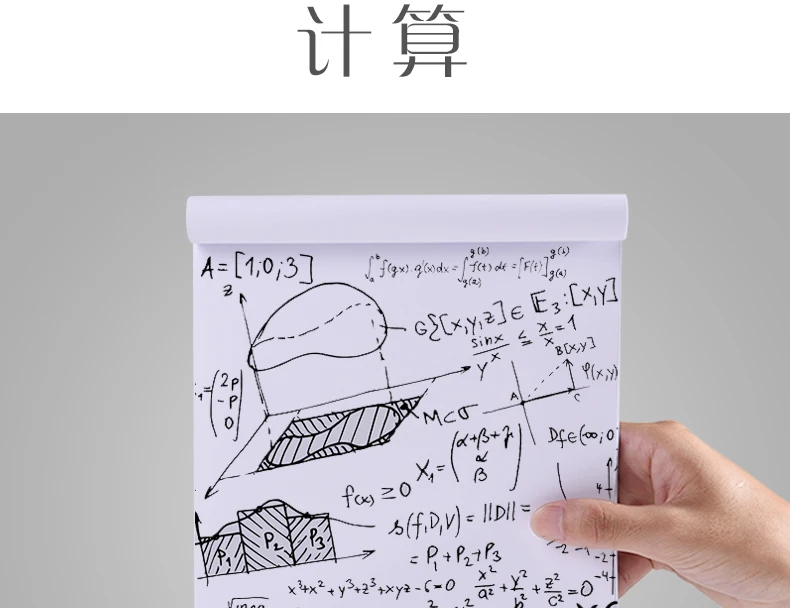 计算
A=[1;0;3]
∫ₐᵇ f(gx).g'(x)dx=∫_{g(a)}^{g(b)} f(t)dt=[F(t)]_{g(a)}^{g(b)}
Z
G{[x,y,z]∈E₃:[x,y]
sinx/x ≤ x/x=1
B[x,y]
Y
φ(x,y)
A
C
(2P
-P
0)
M⊂σ
X₁=(α+β+γ
α
β)
Df∈(-∞;0
4
f(x)≥0
s(f,D,V)=||D||=
P₁
P₂
P₃
=P₁+P₂+P₃
-2
-2
-4
x³+x²+y³+z³+xyz-6=0
x²/a²+y²/b²+z²/c²=0